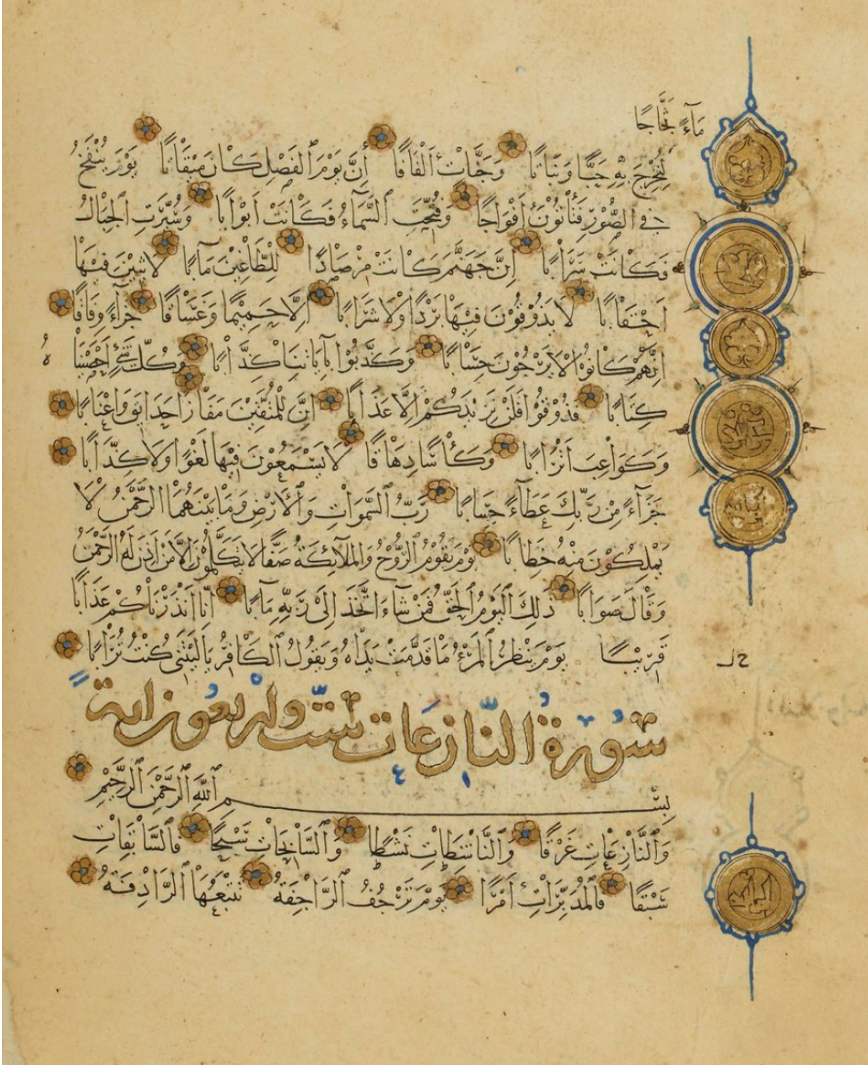 مَآءً ثَجَّاجًا
لِنُخْرِجَ بِهِ حَبًّا وَنَبَاتًا وَجَنَّاتٍ أَلْفَافًا إِنَّ يَوْمَ ٱلْفَصْلِ كَانَ مِيقَاتًا يَوْمَ يُنْفَخُ
فِي ٱلصُّورِ فَتَأْتُونَ أَفْوَاجًا وَفُتِحَتِ ٱلسَّمَآءُ فَكَانَتْ أَبْوَابًا وَسُيِّرَتِ ٱلْجِبَالُ
فَكَانَتْ سَرَابًا إِنَّ جَهَنَّمَ كَانَتْ مِرْصَادًا لِلطَّاغِينَ مَآبًا لَابِثِينَ فِيهَا
أَحْقَابًا لَا يَذُوقُونَ فِيهَا بَرْدًا وَلَا شَرَابًا إِلَّا حَمِيمًا وَغَسَّاقًا جَزَآءً وِفَاقًا
إِنَّهُمْ كَانُوا لَا يَرْجُونَ حِسَابًا وَكَذَّبُوا بِآيَاتِنَا كِذَّابًا وَكُلَّ شَيْءٍ أَحْصَيْنَاهُ
كِتَابًا فَذُوقُوا فَلَنْ نَزِيدَكُمْ إِلَّا عَذَابًا إِنَّ لِلْمُتَّقِينَ مَفَازًا حَدَآئِقَ وَأَعْنَابًا
وَكَوَاعِبَ أَتْرَابًا وَكَأْسًا دِهَاقًا لَا يَسْمَعُونَ فِيهَا لَغْوًا وَلَا كِذَّابًا
جَزَآءً مِنْ رَبِّكَ عَطَآءً حِسَابًا رَبِّ ٱلسَّمَوَاتِ وَٱلْأَرْضِ وَمَا بَيْنَهُمَا ٱلرَّحْمَنُ لَا
يَمْلِكُونَ مِنْهُ خِطَابًا يَوْمَ يَقُومُ ٱلرُّوحُ وَٱلْمَلَآئِكَةُ صَفًّا لَا يَتَكَلَّمُونَ إِلَّا مَنْ أَذِنَ لَهُ ٱلرَّحْمَنُ
وَقَالَ صَوَابًا ذَلِكَ ٱلْيَوْمُ ٱلْحَقُّ فَمَنْ شَآءَ ٱتَّخَذَ إِلَى رَبِّهِ مَآبًا إِنَّا أَنْذَرْنَاكُمْ عَذَابًا
قَرِيبًا يَوْمَ يَنْظُرُ ٱلْمَرْءُ مَا قَدَّمَتْ يَدَاهُ وَيَقُولُ ٱلْكَافِرُ يَالَيْتَنِي كُنْتُ تُرَابًا
سُورَةُ ٱلنَّازِعَاتِ سِتٌّ وَأَرْبَعُونَ آيَةً
بِسْمِ ٱللَّهِ ٱلرَّحْمَنِ ٱلرَّحِيمِ
وَٱلنَّازِعَاتِ غَرْقًا وَٱلنَّاشِطَاتِ نَشْطًا وَٱلسَّابِحَاتِ سَبْحًا فَٱلسَّابِقَاتِ
سَبْقًا فَٱلْمُدَبِّرَاتِ أَمْرًا يَوْمَ تَرْجُفُ ٱلرَّاجِفَةُ تَتْبَعُهَا ٱلرَّادِفَةُ